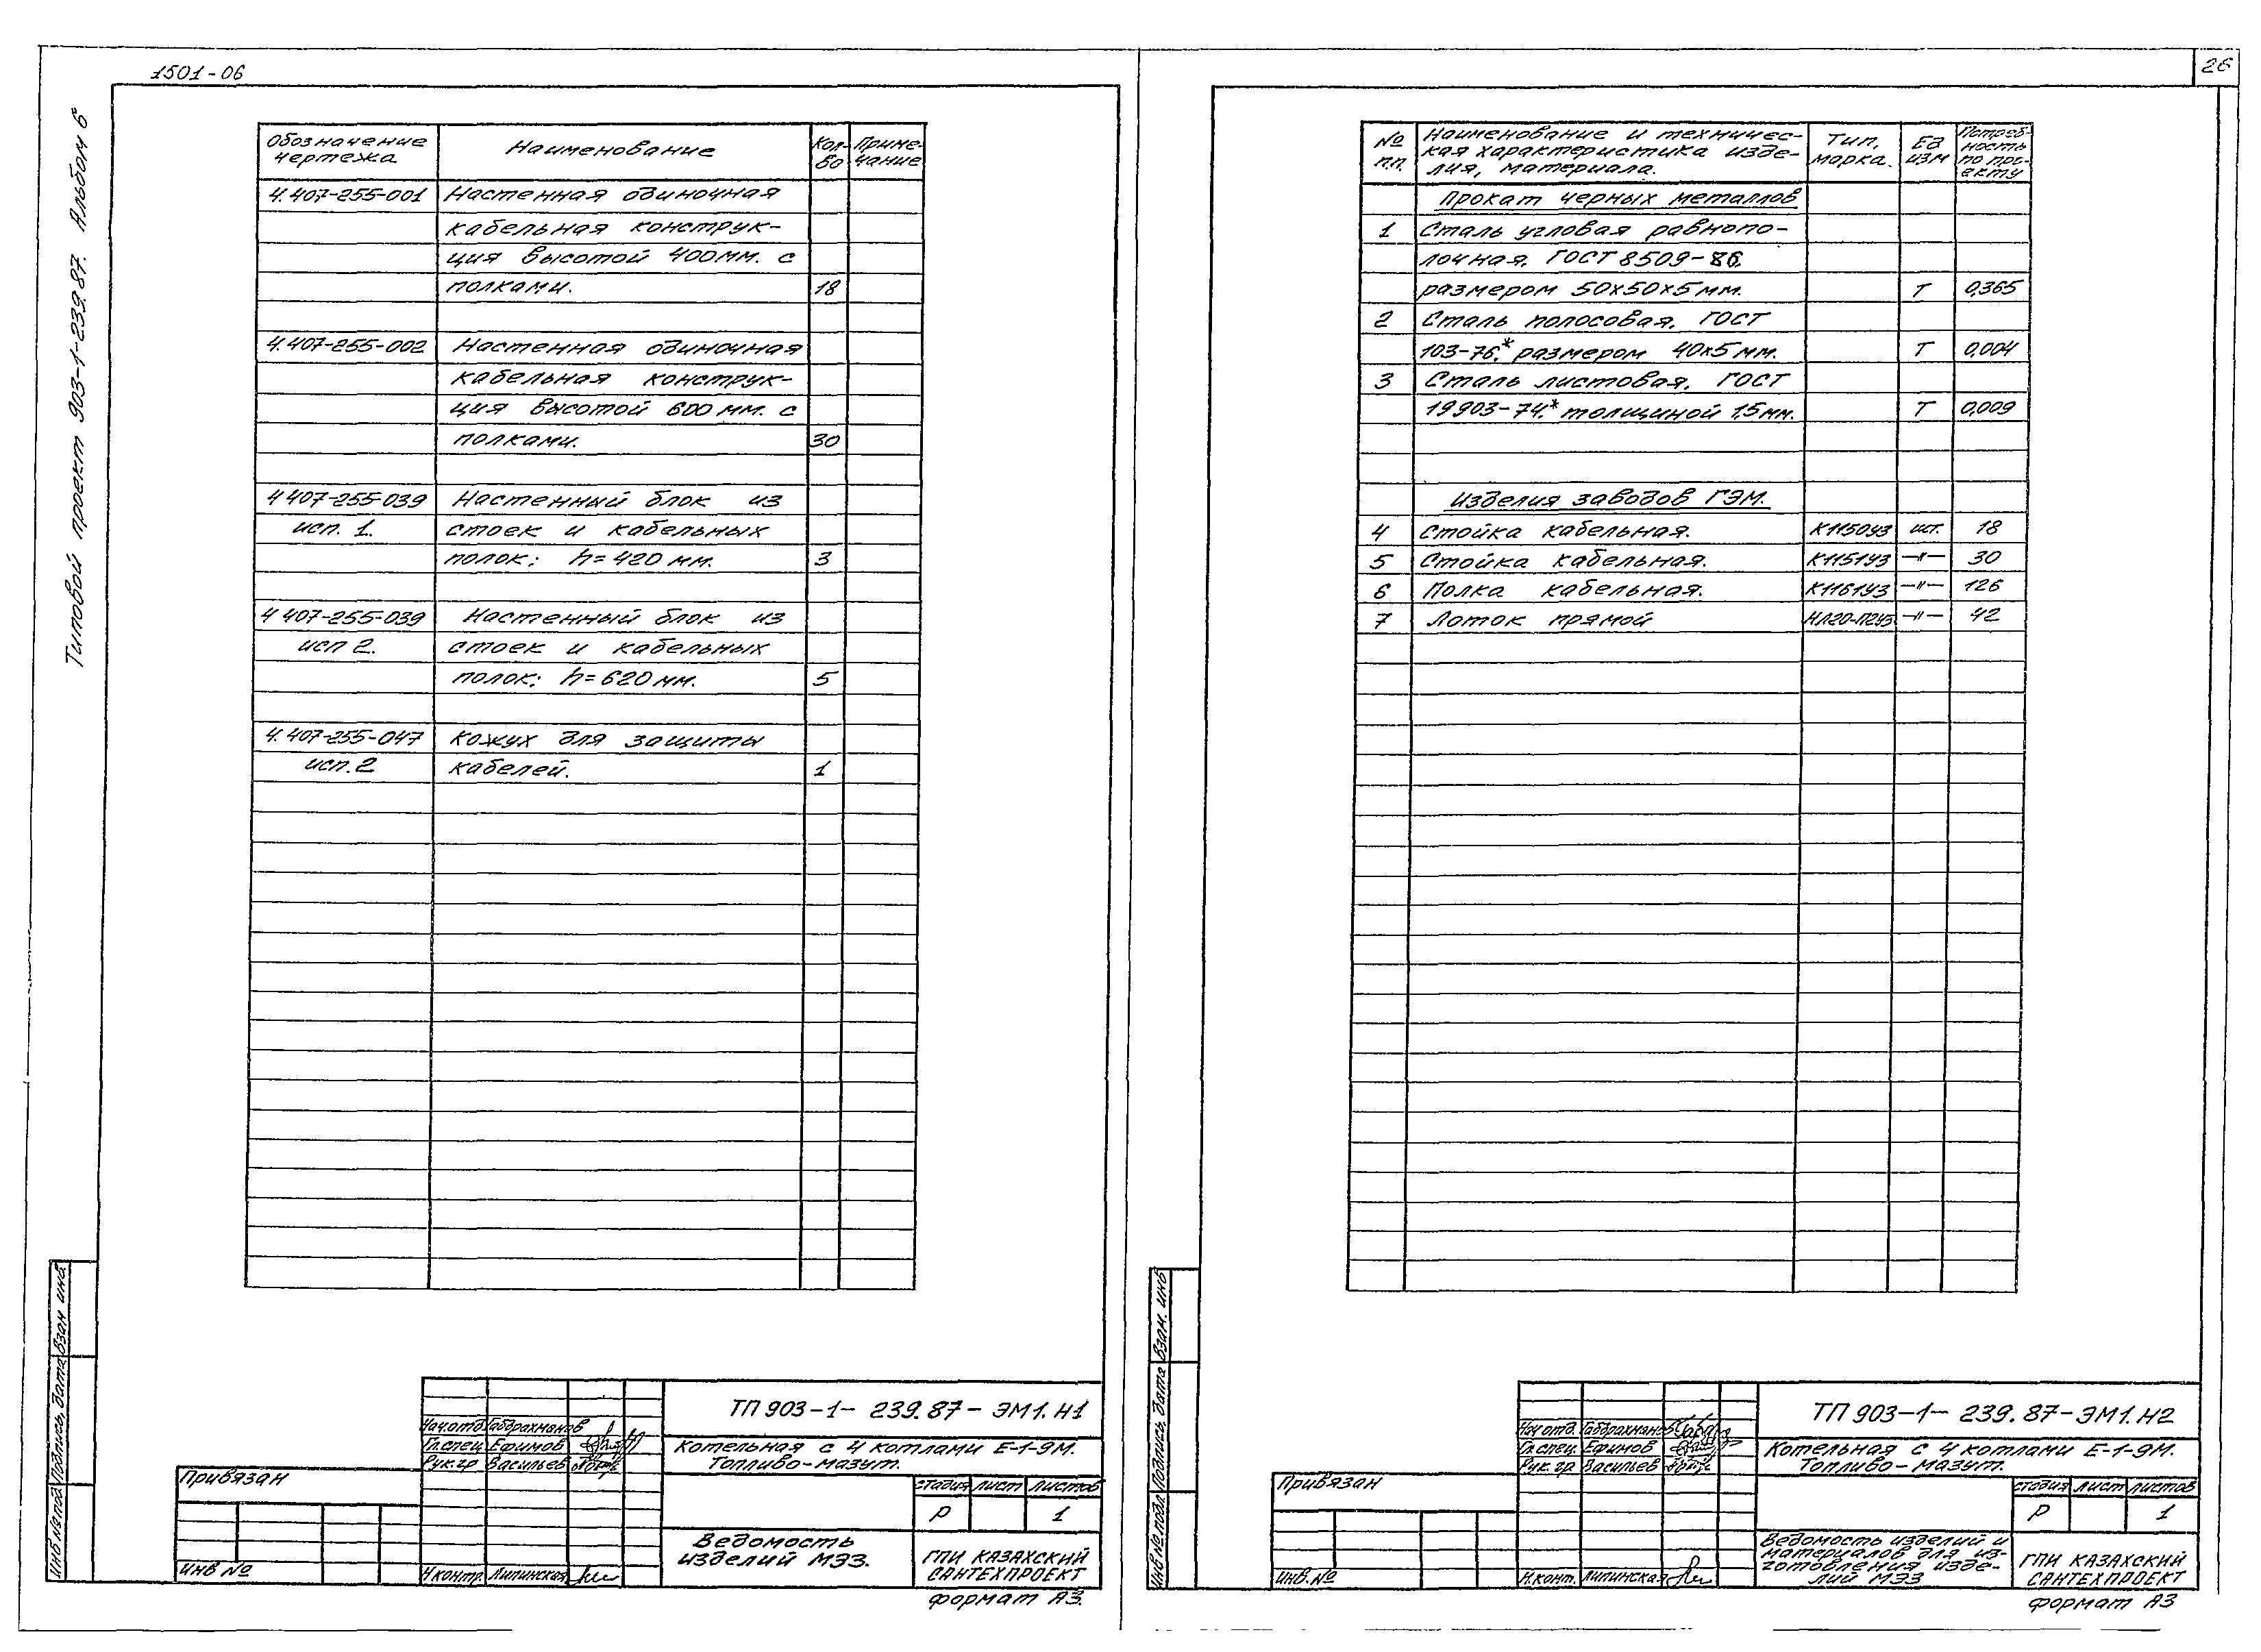 1501-06
26
Типовой проект 903-1-239.87. Альбом 6
Обозначение чертежа
Наименование
Кол-во
Приме-чание
4.407-255-001 Настенная одиночная
кабельная конструк-
ция высотой 400мм. с
полками. 18
4.407-255-002 Настенная одиночная
кабельная конструк-
ция высотой 600 мм. с
полками. 30
4 407-255-039 Настенный блок из
исп. 1. стоек и кабельных
полок: h=420 мм. 3
4 407-255-039 Настенный блок из
исп 2. стоек и кабельных
полок: h=620 мм. 5
4. 407-255-047 Кожух для защиты
исп. 2 кабелей. 1
Взам инв
Подпись, дата
Инв № под
Привязан
Инв №
Нач.отд. Габдрахманов
Гл.спец Ефимов
Рук.гр Васильев
Н контр. Липинская
ТП 903-1- 239.87- ЭМ1.Н1
Котельная с 4 котлами Е-1-9М.
Топливо-мазут.
стадия лист листов
Р 1
Ведомость
изделий МЭЗ.
ГПИ КАЗАХСКИЙ
САНТЕХПРОЕКТ
формат А3.
№ п.п.
Наименование и техничес-
кая характеристика изде-
лия, материала.
Тип, марка.
Ед изм
Потреб-
ность
по про-
екту
Прокат черных металлов
1 Сталь угловая равнопо-
лочная. ГОСТ 8509-86.
размером 50х50х5мм. Т 0,365
2 Сталь полосовая. ГОСТ
103-76.* размером 40х5 мм. Т 0,004
3 Сталь листовая. ГОСТ
19903-74.* толщиной 1,5 мм. Т 0,009
Изделия заводов ГЭМ.
4 Стойка кабельная. К1150У3 шт. 18
5 Стойка кабельная. К1151У3 —"— 30
6 Полка кабельная. К1161У3 —"— 126
7 Лоток прямой НЛ20-П2У3 —"— 42
Взам. инв
Подпись, дата
Инв № подл
Привязан
Инв. №
Нач отд. Габдрахманов
Гл.спец. Ефимов
Рук. гр Васильев
Н.конт. Липинская
ТП 903-1- 239.87-ЭМ1.Н2
Котельная с 4 котлами Е-1-9М.
Топливо-мазут.
стадия лист листов
Р 1
Ведомость изделий и
материалов для из-
готовления изде-
лий МЭЗ
ГПИ КАЗАХСКИЙ
САНТЕХПРОЕКТ
формат А3